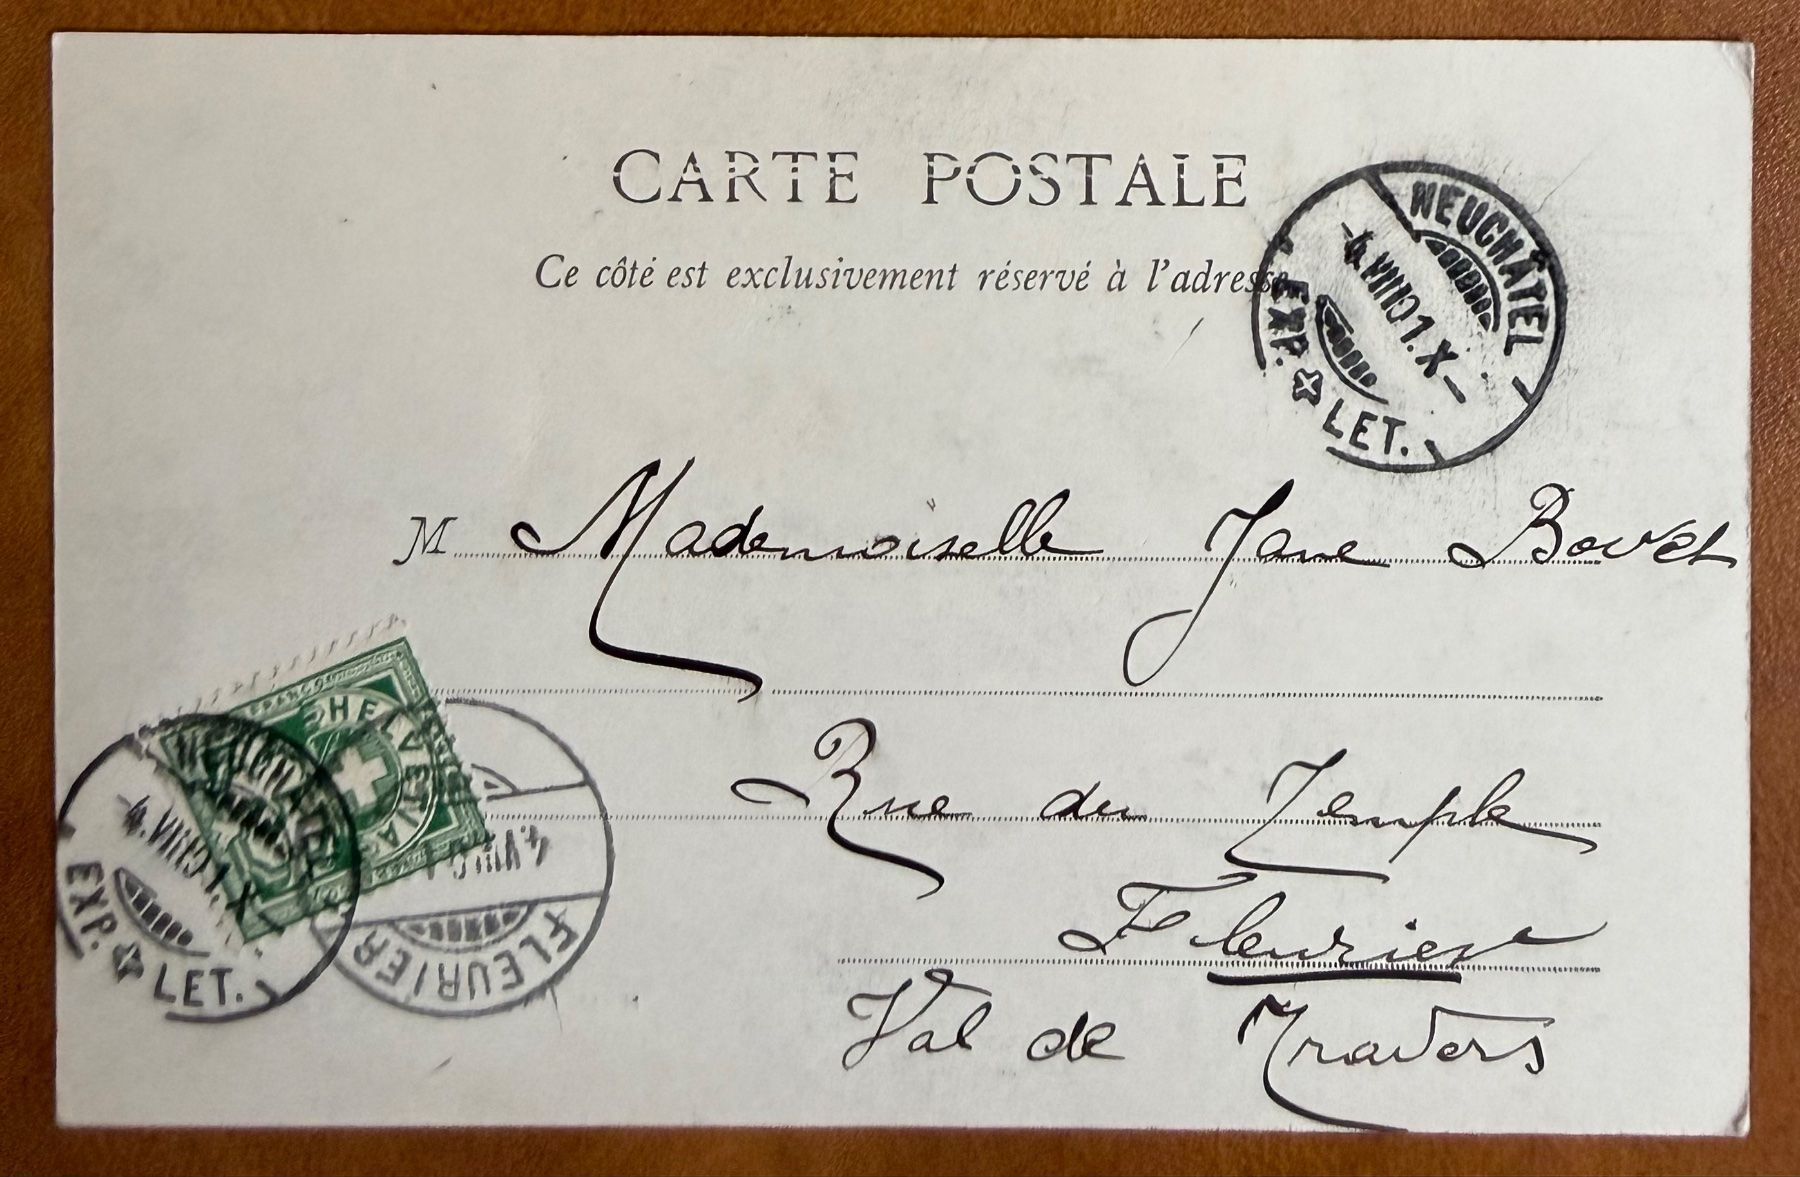 CARTE POSTALE
Ce côté est exclusivement réservé à l'adresse
NEUCHÂTEL
-4.VIII01.X-
EXP. LET.
M Mademoiselle Jane Bovet
Rue du Temple
Fleurier
Val de Travers
FRANCO
HELVETIA
NEUCHÂTEL
-4.VIII01.X
EXP. LET.
4.VIII
FLEURIER